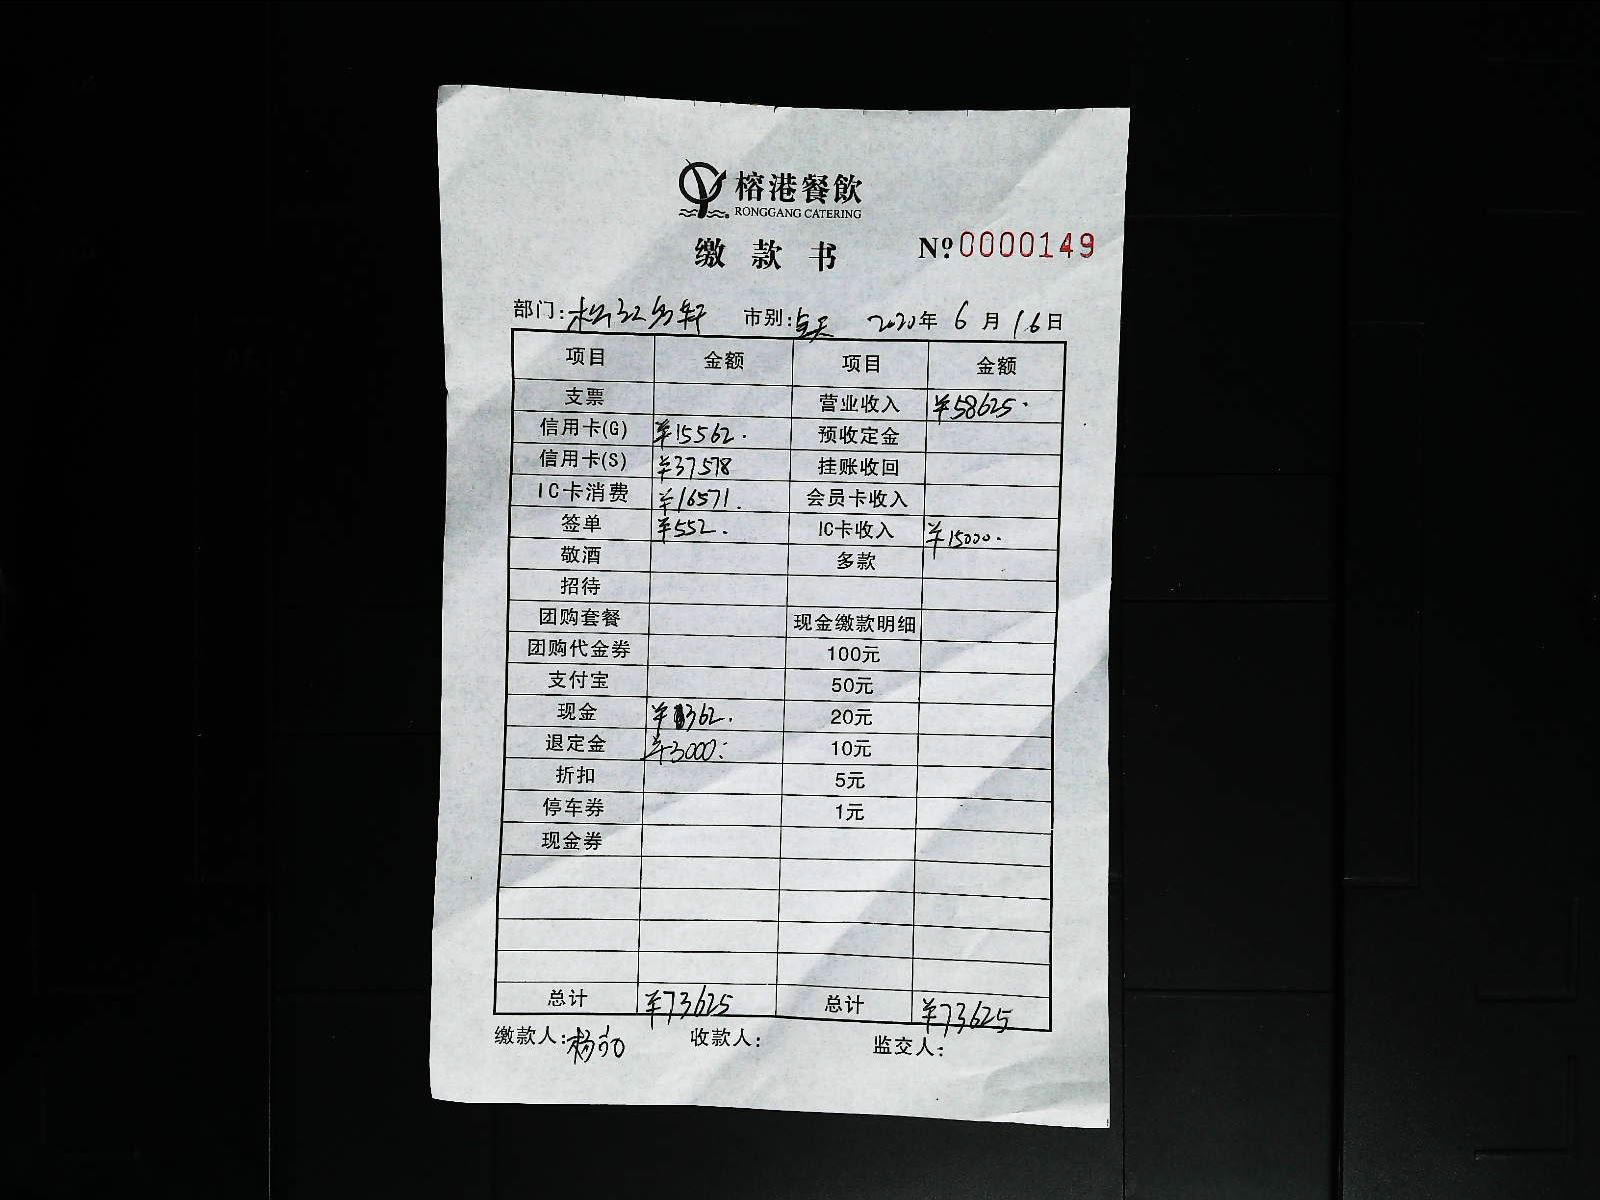 榕港餐飲
RONGGANG CATERING
缴款书 Nº 0000149
部门: 市别:全天 2020年6月16日
项目 金额 项目 金额
支票 营业收入 ¥58625.
信用卡(G) ¥15562. 预收定金
信用卡(S) ¥37578 挂账收回
IC卡消费 ¥16571. 会员卡收入
签单 ¥552. IC卡收入 ¥15000.
敬酒 多款
招待
团购套餐 现金缴款明细
团购代金券 100元
支付宝 50元
现金 ¥362. 20元
退定金 ¥3000. 10元
折扣 5元
停车券 1元
现金券
总计 ¥73625 总计 ¥73625
缴款人:杨 收款人: 监交人: